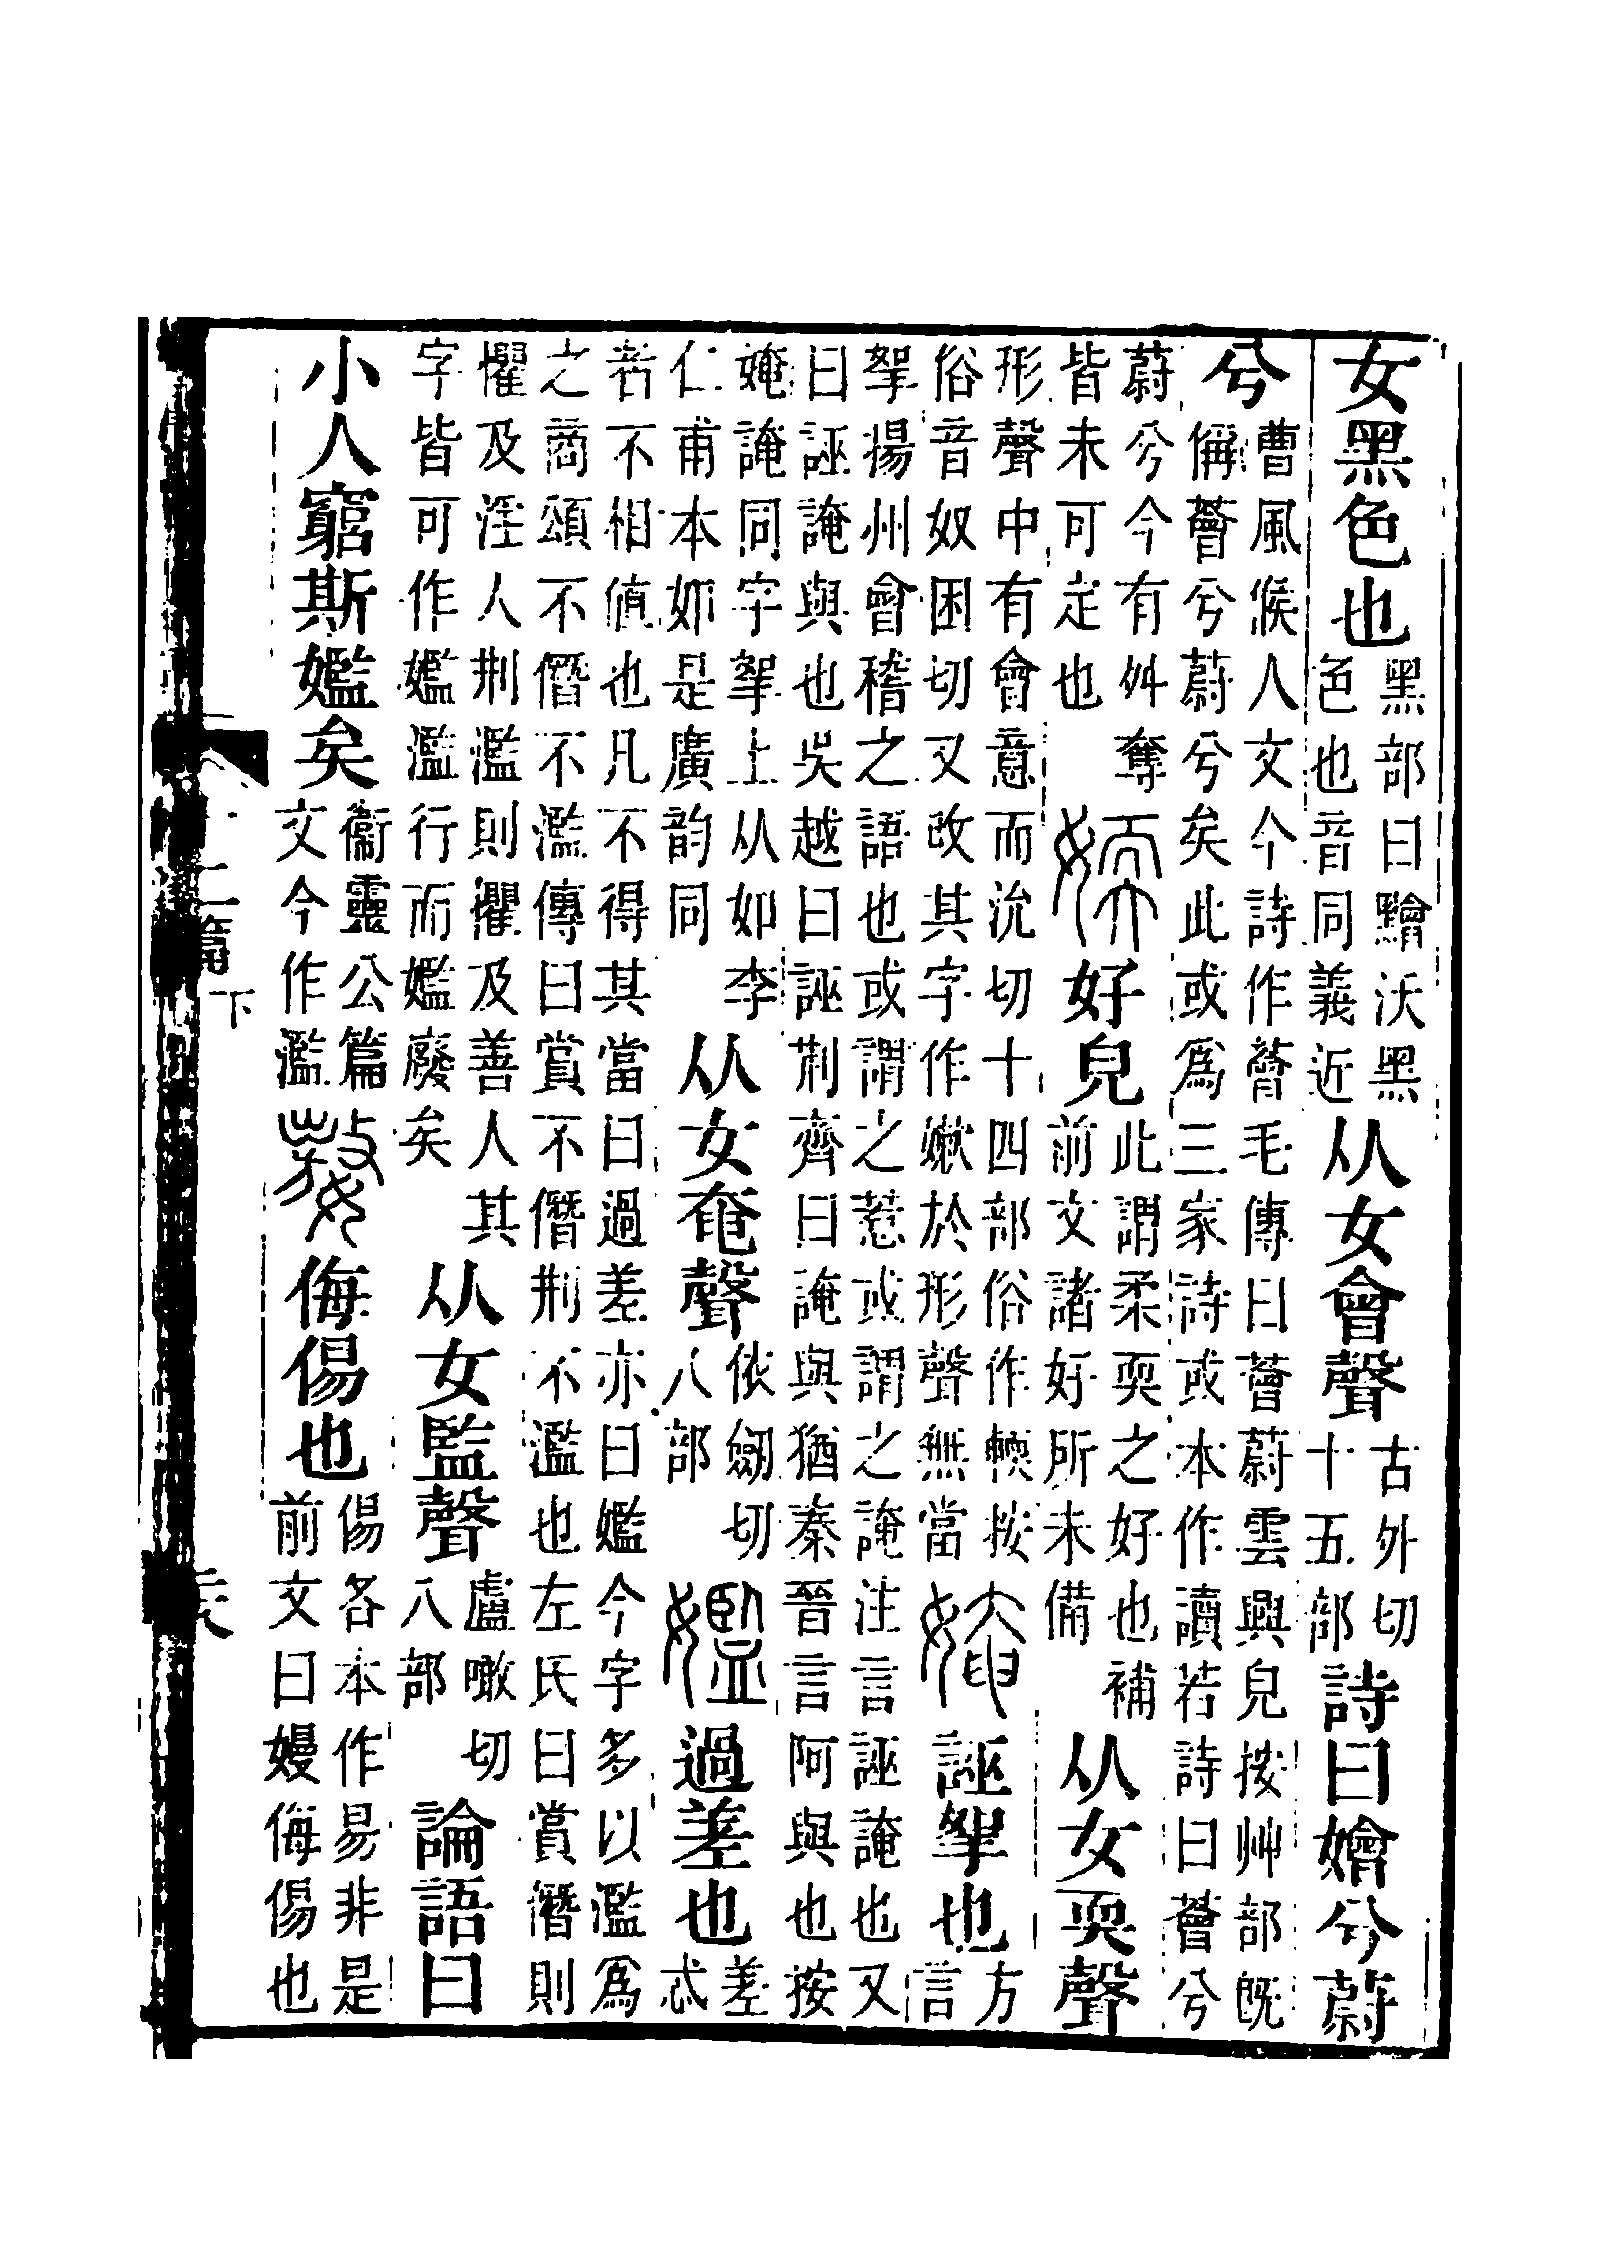 女黑色也黑部曰䵳沃黑色也音同義近从女會聲古外切十五部詩曰嬒兮蔚
兮曹風候人文今詩作薈毛傳曰薈蔚雲興皃按艸部旣偁薈兮蔚兮矣此或爲三家詩或本作讀若詩曰薈兮
蔚兮今有舛奪皆未可定也媆好皃此謂柔耎之好也補前文諸好所未備从女耎聲
形聲中有會意而沇切十四部俗作輭按俗音奴困切又改其字作嫩於形聲無當㛪誣挐也方言
挐揚州會稽之語也或謂之惹或謂之䛳注言誣䛳也又曰誣䛳與也吳越曰誣荆齊曰䛳與猶秦晉言阿與也按
㛪䛳同字挐上从如李仁甫本如是廣韵同从女奄聲依劒切八部㜮過差也差忒
者不相値也凡不得其當曰過差亦曰㜮今字多以濫爲之商頌不僭不濫傳曰賞不僭刑不濫也左氏曰賞僭則
懼及淫人刑濫則懼及善人其字皆可作㜮濫行而㜮廢矣从女監聲盧瞰切八部論語曰
小人窮斯㜮矣衞靈公篇文今作濫嫯侮㑥也㑥各本作易非是前文曰嫚侮㑥也
二篇下